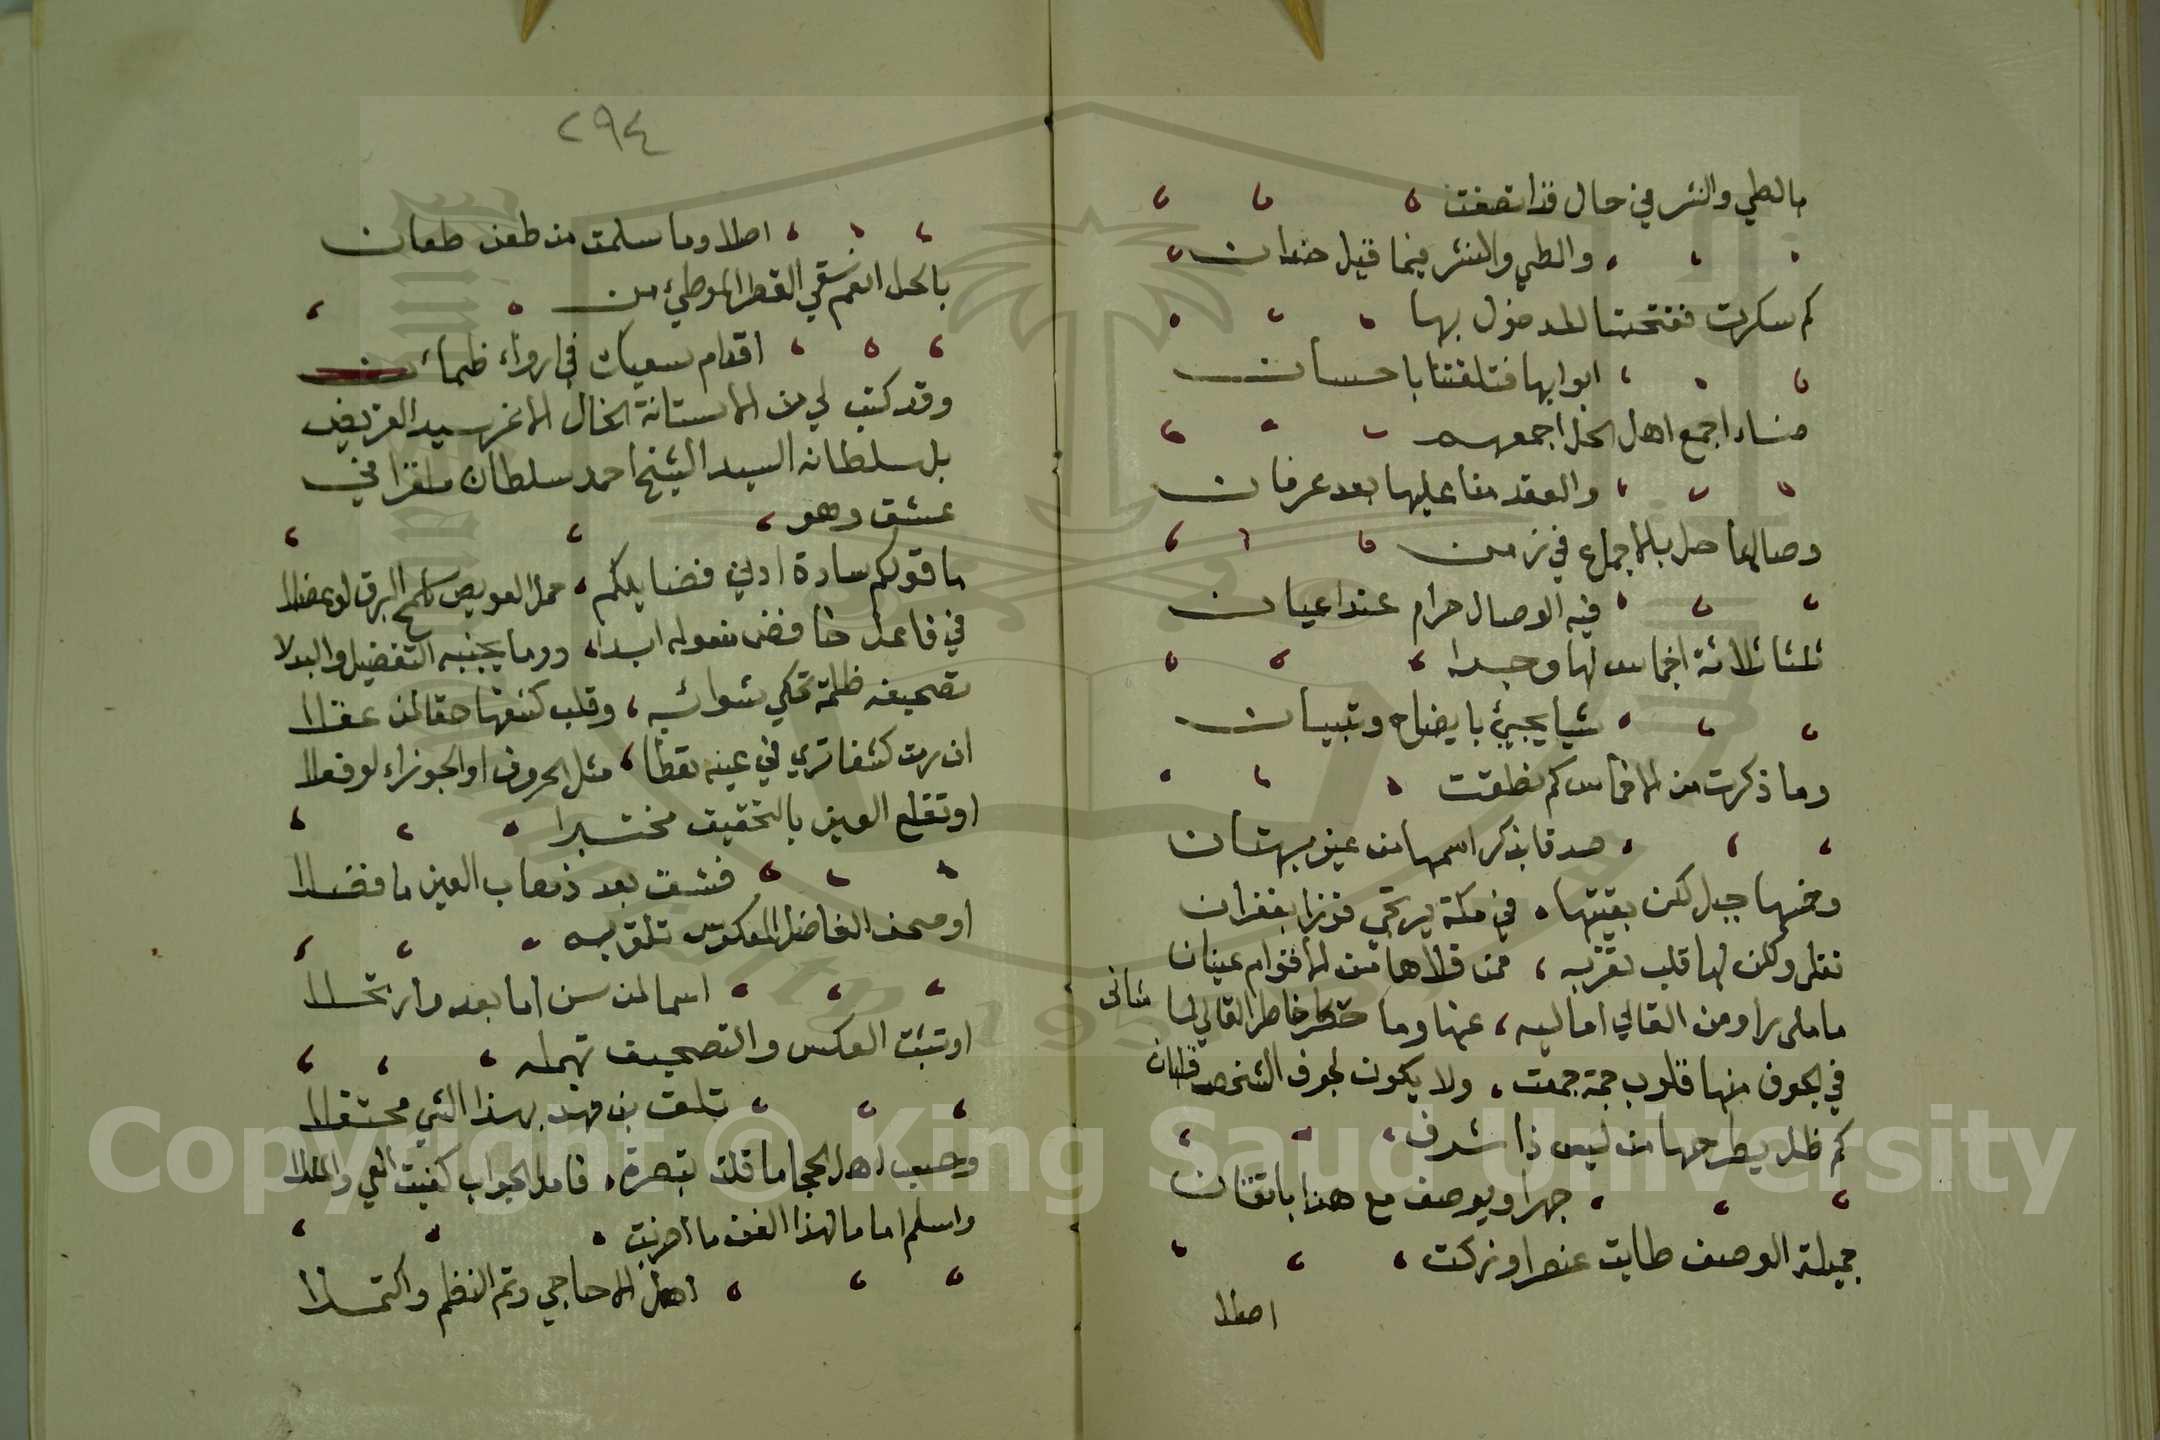 بالطي والنشر في حال قد اتصفت
والطي والنشر فيما قيل ضدان
كم سكرت ففتحنا للدخول بها
ابوابها فتلقتنا باحسان
اجمع اهل الحل اجمعهم
والعقد منا عليها بعد عرفان
وصالها حل بالاجماع في زمن
فيه الوصال حرام عند اعيان
ثلثا ثلاثة اخماس لها وجدا
شيا يجيئ بايضاح وتبيان
وما ذكرت من الاخماس كم نطقت
صدقا بذكر اسمها من غير بهتان
وخمسها جبل لكن بقيتها في مكة يرتجي فوزا بغفران
ولكن لها قلب تقر به ممن قلاها من الاقوام عينان
ما مل راو من القالي اماليه عنها وما خاطر القالي لها ثاني
في الجوف منها قلوب جمة جمعت ولا يكون لجوف الشخص قلبان
كم ظل يطرحها من ليس ذا شرف
جهرا ويوصف مع هذا باتقان
جميلة الوصف طابت عنصرا وزكت
اصلا
٢٩٤
اصلا وما سلمت من طعن طعان
بالحل انعم سقي القطر الموطئ من
اقدام سعيك في ارواء ظمان
وقد كتب لي من الاستانة الخال الاغر سيد القريض
بل سلطانه السيد الشيخ احمد سلطان ملغزا في
عشق وهو
ما قولكم سادة ادنى فضايلكم حل العويص كلمح البرق لو عضلا
في فاعل خافض مفعوله ابدا وما يجنبه التفضيل والبدلا
تصحيفه ظلمة تحكي شوائبه وقلب كشفها حقا لمن عقلا
ان رمت كشفا ترى في عينه نقطا مثل الحروف او الجوزاء لو فعلا
او تقلع العين بالتحقيق مختبرا
فشق بعد ذهاب العين ما فضلا
او صحف الفاضل المعكوس تلق به
اسما لمن سن اما بعد وارتجلا
او تثبت العكس والتصحيف تهمله
تلق بن فهد بهذا الشي محتفلا
وحسب اهل الحجا ما قلت تبصرة فامل الجواب كفيت العي والمللا
واسلم اماما لهذا الفن ما عرفت
اهل الاحاجي وتم النظم واكتملا
Copyright © King Saud University